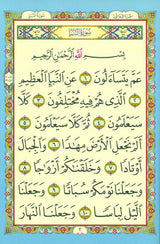 سُورَةُ النَّبَإِ
بِسْمِ اللَّهِ الرَّحْمَٰنِ الرَّحِيمِ
عَمَّ يَتَسَاءَلُونَ ١ عَنِ النَّبَإِ الْعَظِيمِ
٢ الَّذِي هُمْ فِيهِ مُخْتَلِفُونَ ٣ كَلَّا
سَيَعْلَمُونَ ٤ ثُمَّ كَلَّا سَيَعْلَمُونَ ٥
أَلَمْ نَجْعَلِ الْأَرْضَ مِهَادًا ٦ وَالْجِبَالَ
أَوْتَادًا ٧ وَخَلَقْنَاكُمْ أَزْوَاجًا ٨
وَجَعَلْنَا نَوْمَكُمْ سُبَاتًا ٩ وَجَعَلْنَا
اللَّيْلَ لِبَاسًا ١٠ وَجَعَلْنَا النَّهَارَ